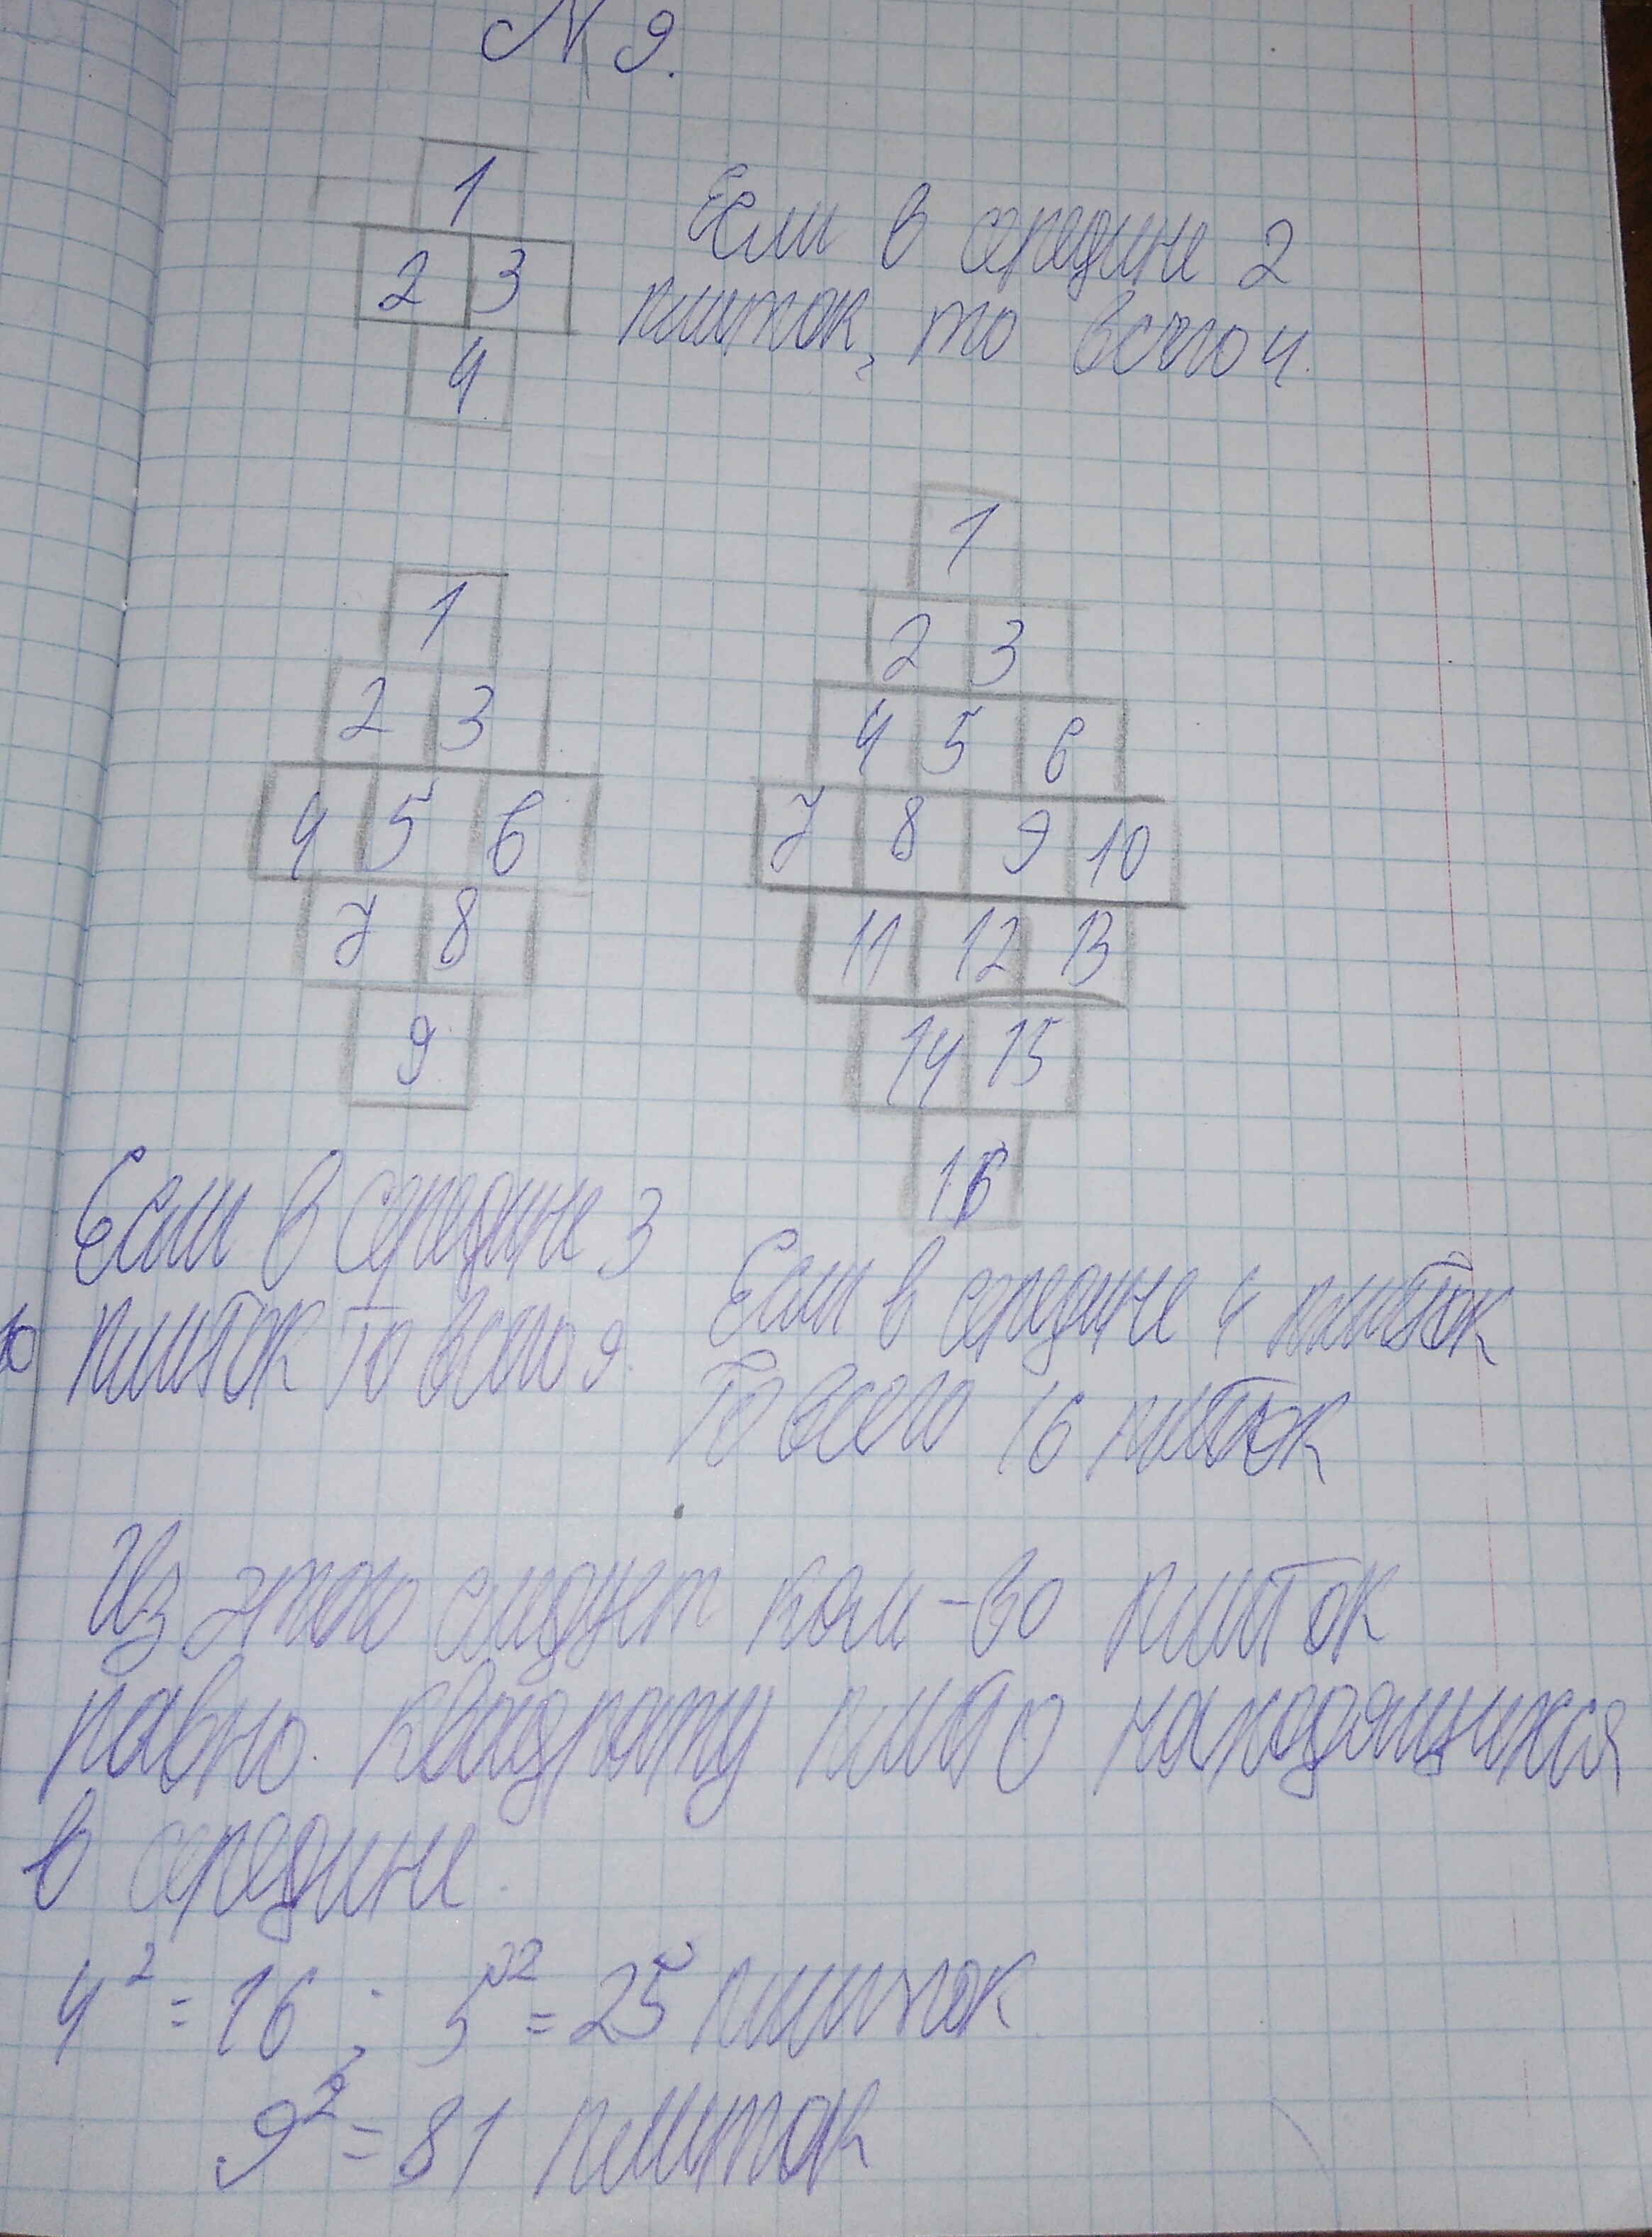 N 9.
1
2 3
4
Если в середине 2
плиток, то всего 4.
1
2 3
4 5 6
7 8
9
1
2 3
4 5 6
7 8 9 10
11 12 13
14 15
16
Если в середине 3
плиток то всего 9.
Если в середине 4 плиток
то всего 16 плиток
Из этого следует кол-во плиток
равно квадрату находящихся
в середине.
4² = 16 ; 5² = 25 плиток
9² = 81 плиток